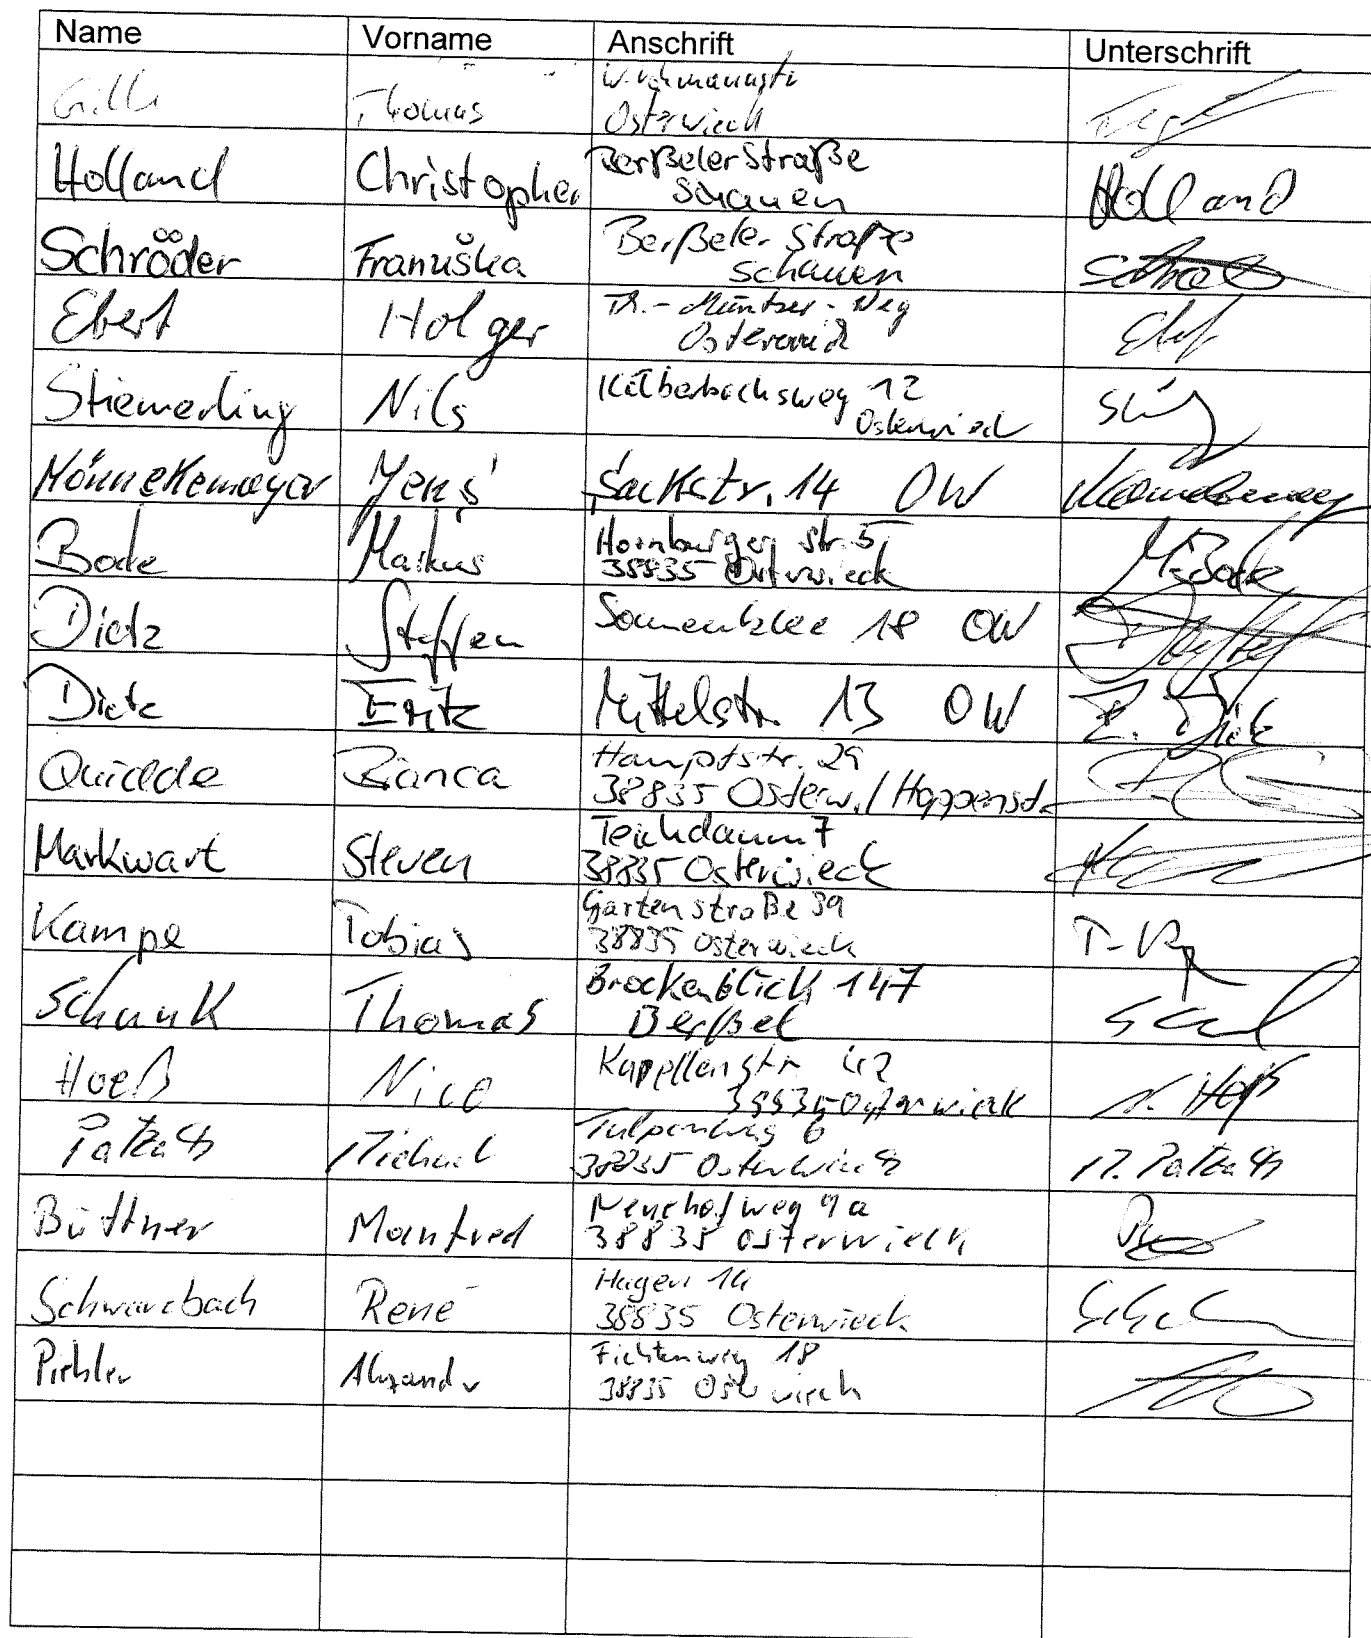 Name Vorname Anschrift Unterschrift
Thomas
Osterwieck
Holland Christopher Berßeler Straße Holland
Schauen
Schröder Franziska Berßeler Straße
Schauen
Ebert Holger Th.-Müntzer-Weg
Osterwieck
Stiemerling Nils Kälberbachsweg 12
Osterwieck
Mönnekemeyer Jens Sackstr. 14 OW
Bode Markus Hornburger Str. 5 M. Bode
38835 Osterwieck
Dietz Steffen Sonnenklee 18 OW
Dietz Fritz Mittelstr. 13 OW F. Dietz
Quidde Bianca Hauptstr. 29
38835 Osterw./Hoppenst.
Markwart Steven Teichdamm 7
38835 Osterwieck
Kampe Tobias Gartenstraße 39
38835 Osterwieck
Schunk Thomas Brockenblick 147
Berßel
Hoeß Nico Kapellenstr. 42 N. Hoeß
38835 Osterwieck
Patzack Michael Tulpenweg 6 M. Patzack
38835 Osterwieck
Büttner Manfred
38835 Osterwieck
Schwarzbach René Hagen 14
38835 Osterwieck
Pichler Alexander Fichtenweg 18
38835 Osterwieck